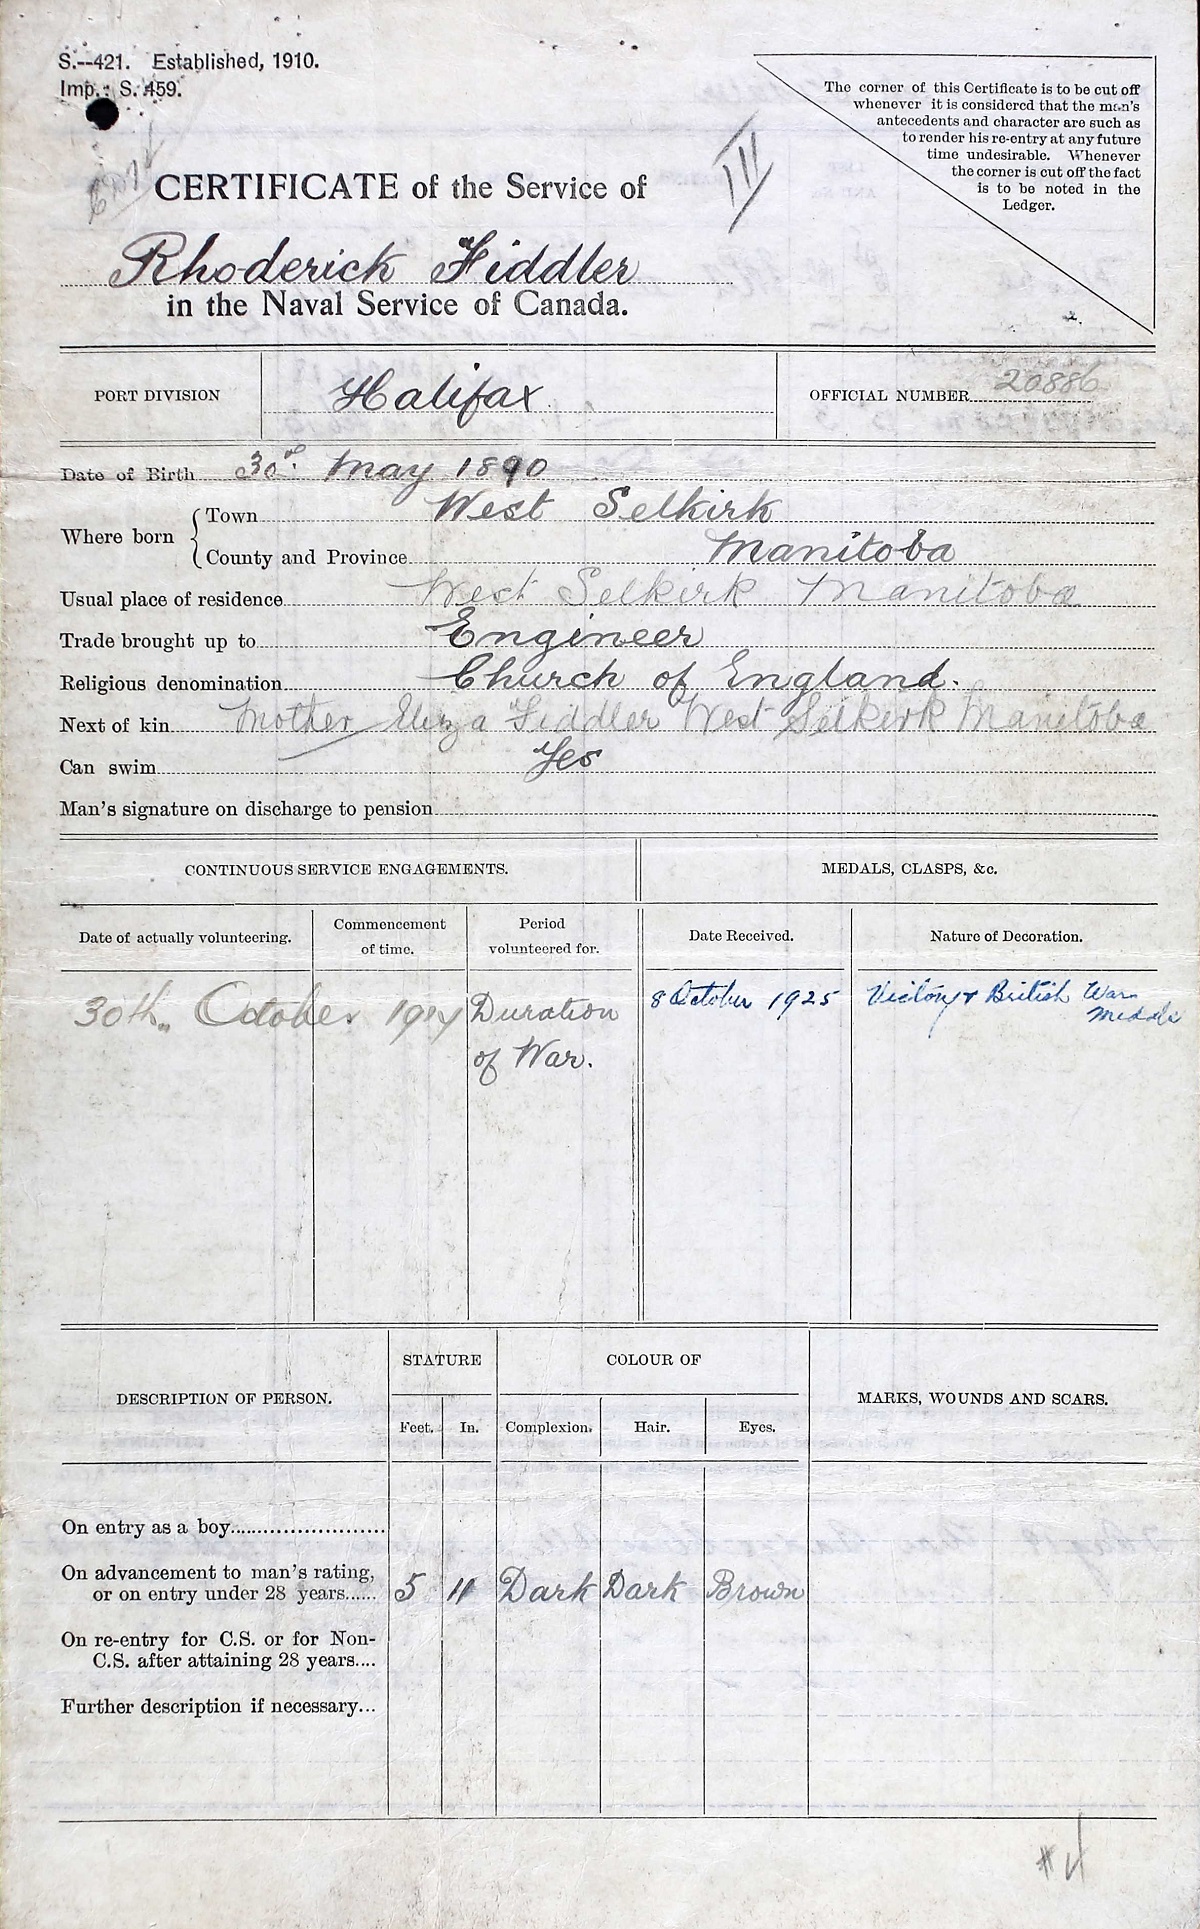 S.--421. Established, 1910.
Imp.: S. 459.
The corner of this Certificate is to be cut off
whenever it is considered that the man's
antecedents and character are such as
to render his re-entry at any future
time undesirable. Whenever
the corner is cut off the fact
is to be noted in the
Ledger.
III
CERTIFICATE of the Service of
Rhoderick Fiddler
in the Naval Service of Canada.
PORT DIVISION Halifax OFFICIAL NUMBER 20886
Date of Birth 30th May 1890
Where born Town West Selkirk
County and Province Manitoba
Usual place of residence West Selkirk Manitoba
Trade brought up to Engineer
Religious denomination Church of England.
Next of kin Mother Eliza Fiddler West Selkirk Manitoba
Can swim Yes
Man's signature on discharge to pension
CONTINUOUS SERVICE ENGAGEMENTS. MEDALS, CLASPS, &c.
Date of actually volunteering. Commencement of time. Period volunteered for. Date Received. Nature of Decoration.
30th October Duration 8 October 1925 Victory & British War
of War. Medals
DESCRIPTION OF PERSON. STATURE COLOUR OF MARKS, WOUNDS AND SCARS.
Feet. In. Complexion. Hair. Eyes.
On entry as a boy
On advancement to man's rating,
or on entry under 28 years...... 5 11 Dark Dark Brown
On re-entry for C.S. or for Non-
C.S. after attaining 28 years....
Further description if necessary...
#4